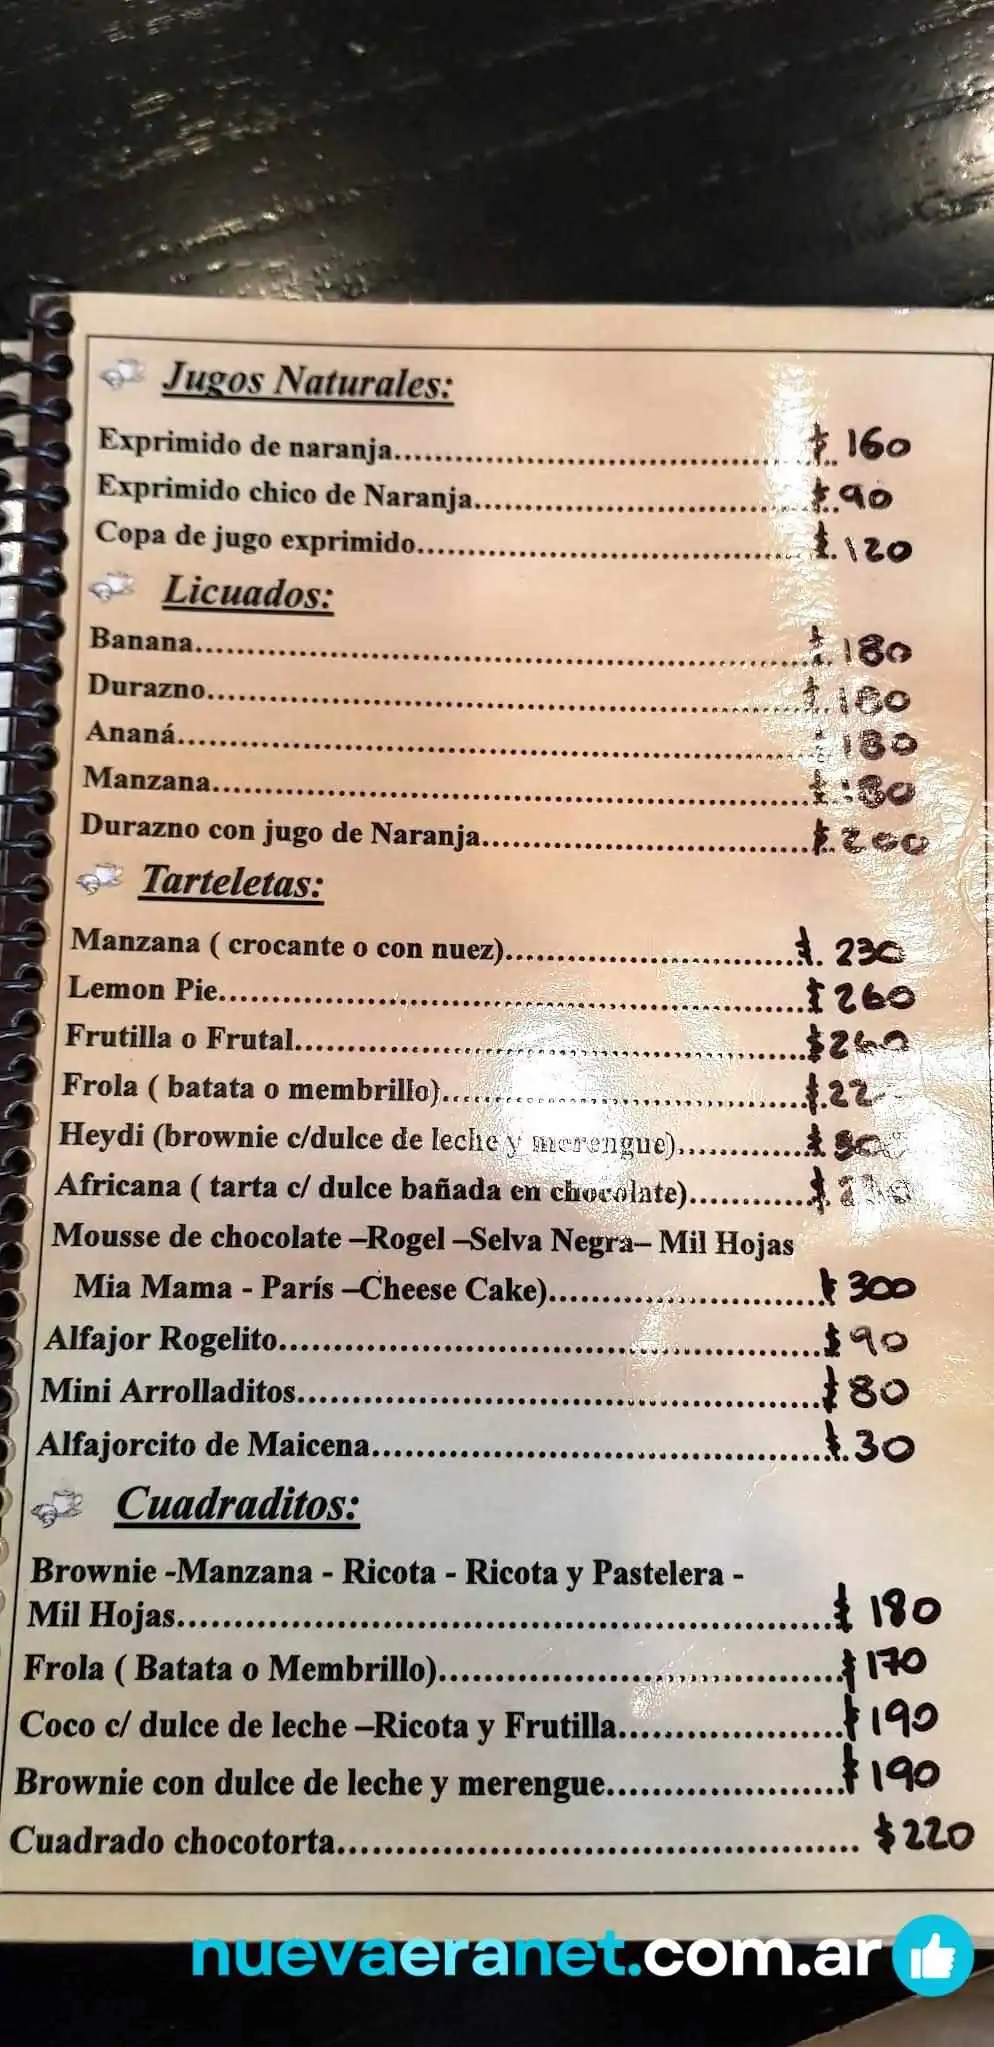 Jugos Naturales:
Exprimido de naranja.................................................$ 160
Exprimido chico de Naranja........................................$ 90
Copa de jugo exprimido..............................................$ 120
Licuados:
Banana.......................................................................$ 180
Durazno.....................................................................$ 180
Ananá........................................................................$ 180
Manzana....................................................................$ 180
Durazno con jugo de Naranja.....................................$ 200
Tarteletas:
Manzana ( crocante o con nuez)................................$. 230
Lemon Pie..................................................................$ 260
Frutilla o Frutal..........................................................$ 260
Frola ( batata o membrillo)..........................................$
Heydi (brownie c/dulce de leche y merengue).............$
Africana ( tarta c/ dulce bañada en chocolate)............$
Mousse de chocolate –Rogel –Selva Negra– Mil Hojas
Mia Mama - París –Cheese Cake)..............................$ 300
Alfajor Rogelito..........................................................$ 90
Mini Arrolladitos........................................................$ 80
Alfajorcito de Maicena................................................$. 30
Cuadraditos:
Brownie -Manzana - Ricota - Ricota y Pastelera -
Mil Hojas....................................................................$ 180
Frola ( Batata o Membrillo).........................................$ 170
Coco c/ dulce de leche –Ricota y Frutilla....................$ 190
Brownie con dulce de leche y merengue.....................$ 190
Cuadrado chocotorta.................................................. $ 220
nuevaeranet.com.ar